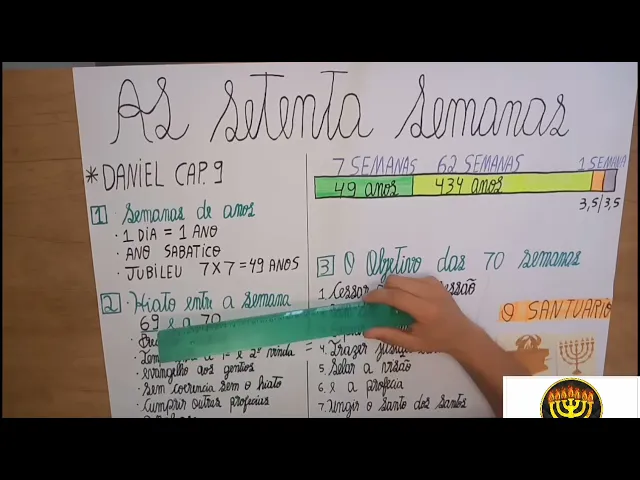 As setenta semanas
* DANIEL CAP. 9
1 Semanas de anos
· 1 DIA = 1 ANO
· ANO SABATICO
· JUBILEU 7X7 = 49 ANOS
2 · Hiato entre a semana
69 e a 70
a 1ª e 2ª vinda =
· evangelho aos gentios
· sem coerencia sem o hiato
· Cumprir outras profecias
7 SEMANAS 62 SEMANAS 1 SEMANA
49 anos 434 anos
3,5/3,5
3 O Objetivo das 70 semanas
1. Cessar
4. Trazer
5. Selar a visão
6. e a profecia
7. Ungir o santo dos santos
O SANTUARIO